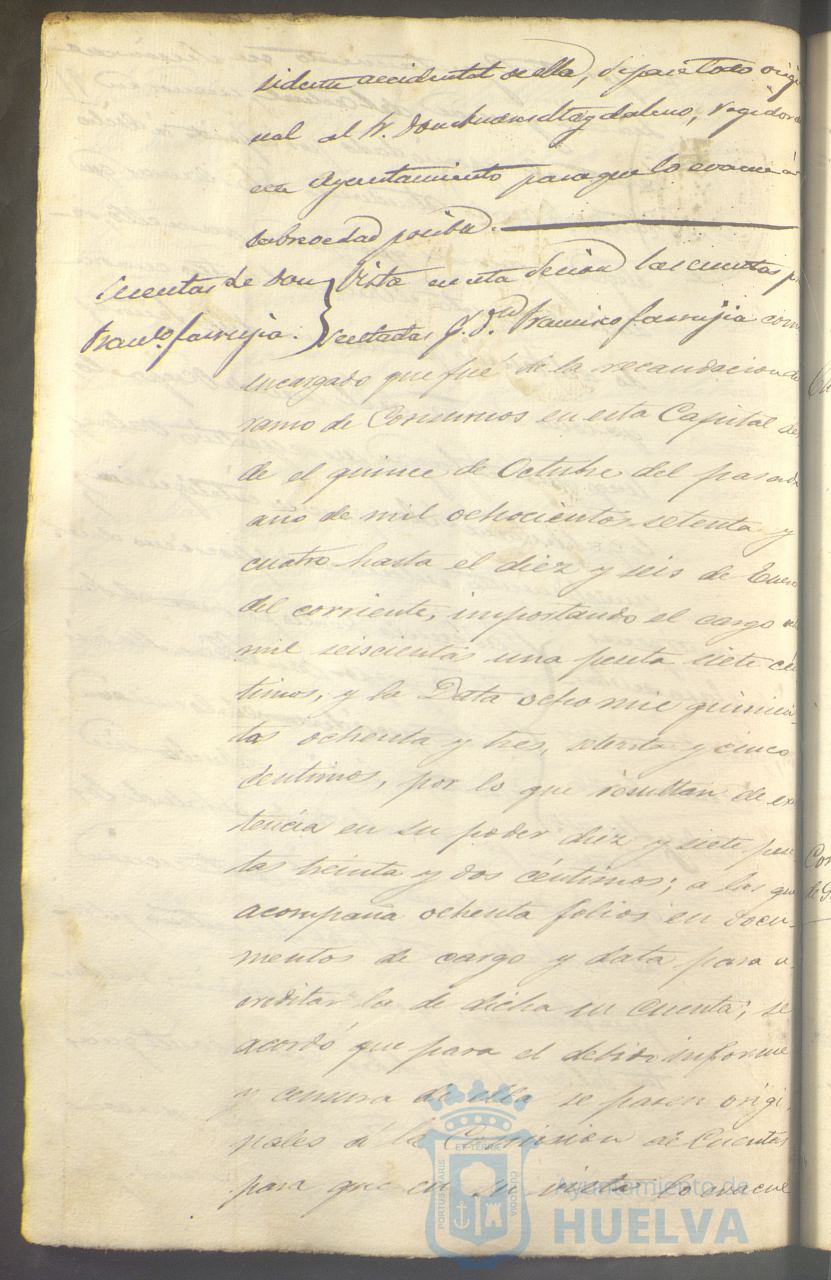 sidente accidental de ella, se pase todo origi
nal al Sr. Don Juan Magdaleno, regidor d
este Ayuntamiento para que lo evacue á
la brevedad posible.
Cuentas de Don
Franco. farrujia.
Vista en esta Sesion las cuentas pr
sentadas p. Dn. Francisco farrujia como
encargado que fué de la recaudacion de
ramo de Consumos en esta Capital des
de el quince de Octubre del pasado
año de mil ochocientos setenta y
cuatro hasta el diez y seis de Enero
del corriente, importando el cargo
mil seiscientas una peseta siete cén
timos, y la Data ocho mil quinien
tas ochenta y tres, setenta y cinco
centimos, por lo que resultan de exis
tencia en su poder diez y siete pese
tas treinta y dos céntimos; a las que
acompaña ochenta folios en docu-
mentos de cargo y data para a-
creditar la de dicha su cuenta; se
acordó que para el debido informe
y censura de ella se pasen origi-
nales á la Comision de Cuentas
para que en su vista lo evacue
PORTUS MARIS
ET TERRÆ
CUSTODIA
Ayuntamiento de
HUELVA